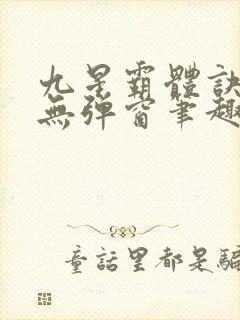 九星霸體訣
無彈窗筆趣
童話里都是騙